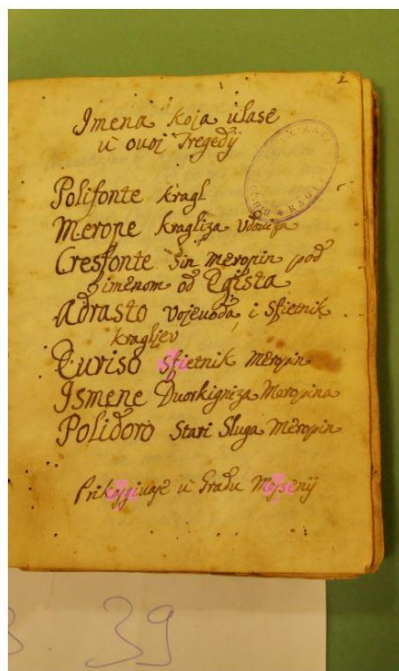 2
Imena koja ulase
u ovoj Tregedij
Polifonte kragl
Merope kragliza Udoviza
Cresfonte sin Meropin pod
imenom od Egista
Adrasto vojevoda, i sfietnik
kragljev
Euriso sfietnik Meropin
Ismene Duorkigniza Meropina
Polidoro Stari Sluga Meropin
u Gradu
39